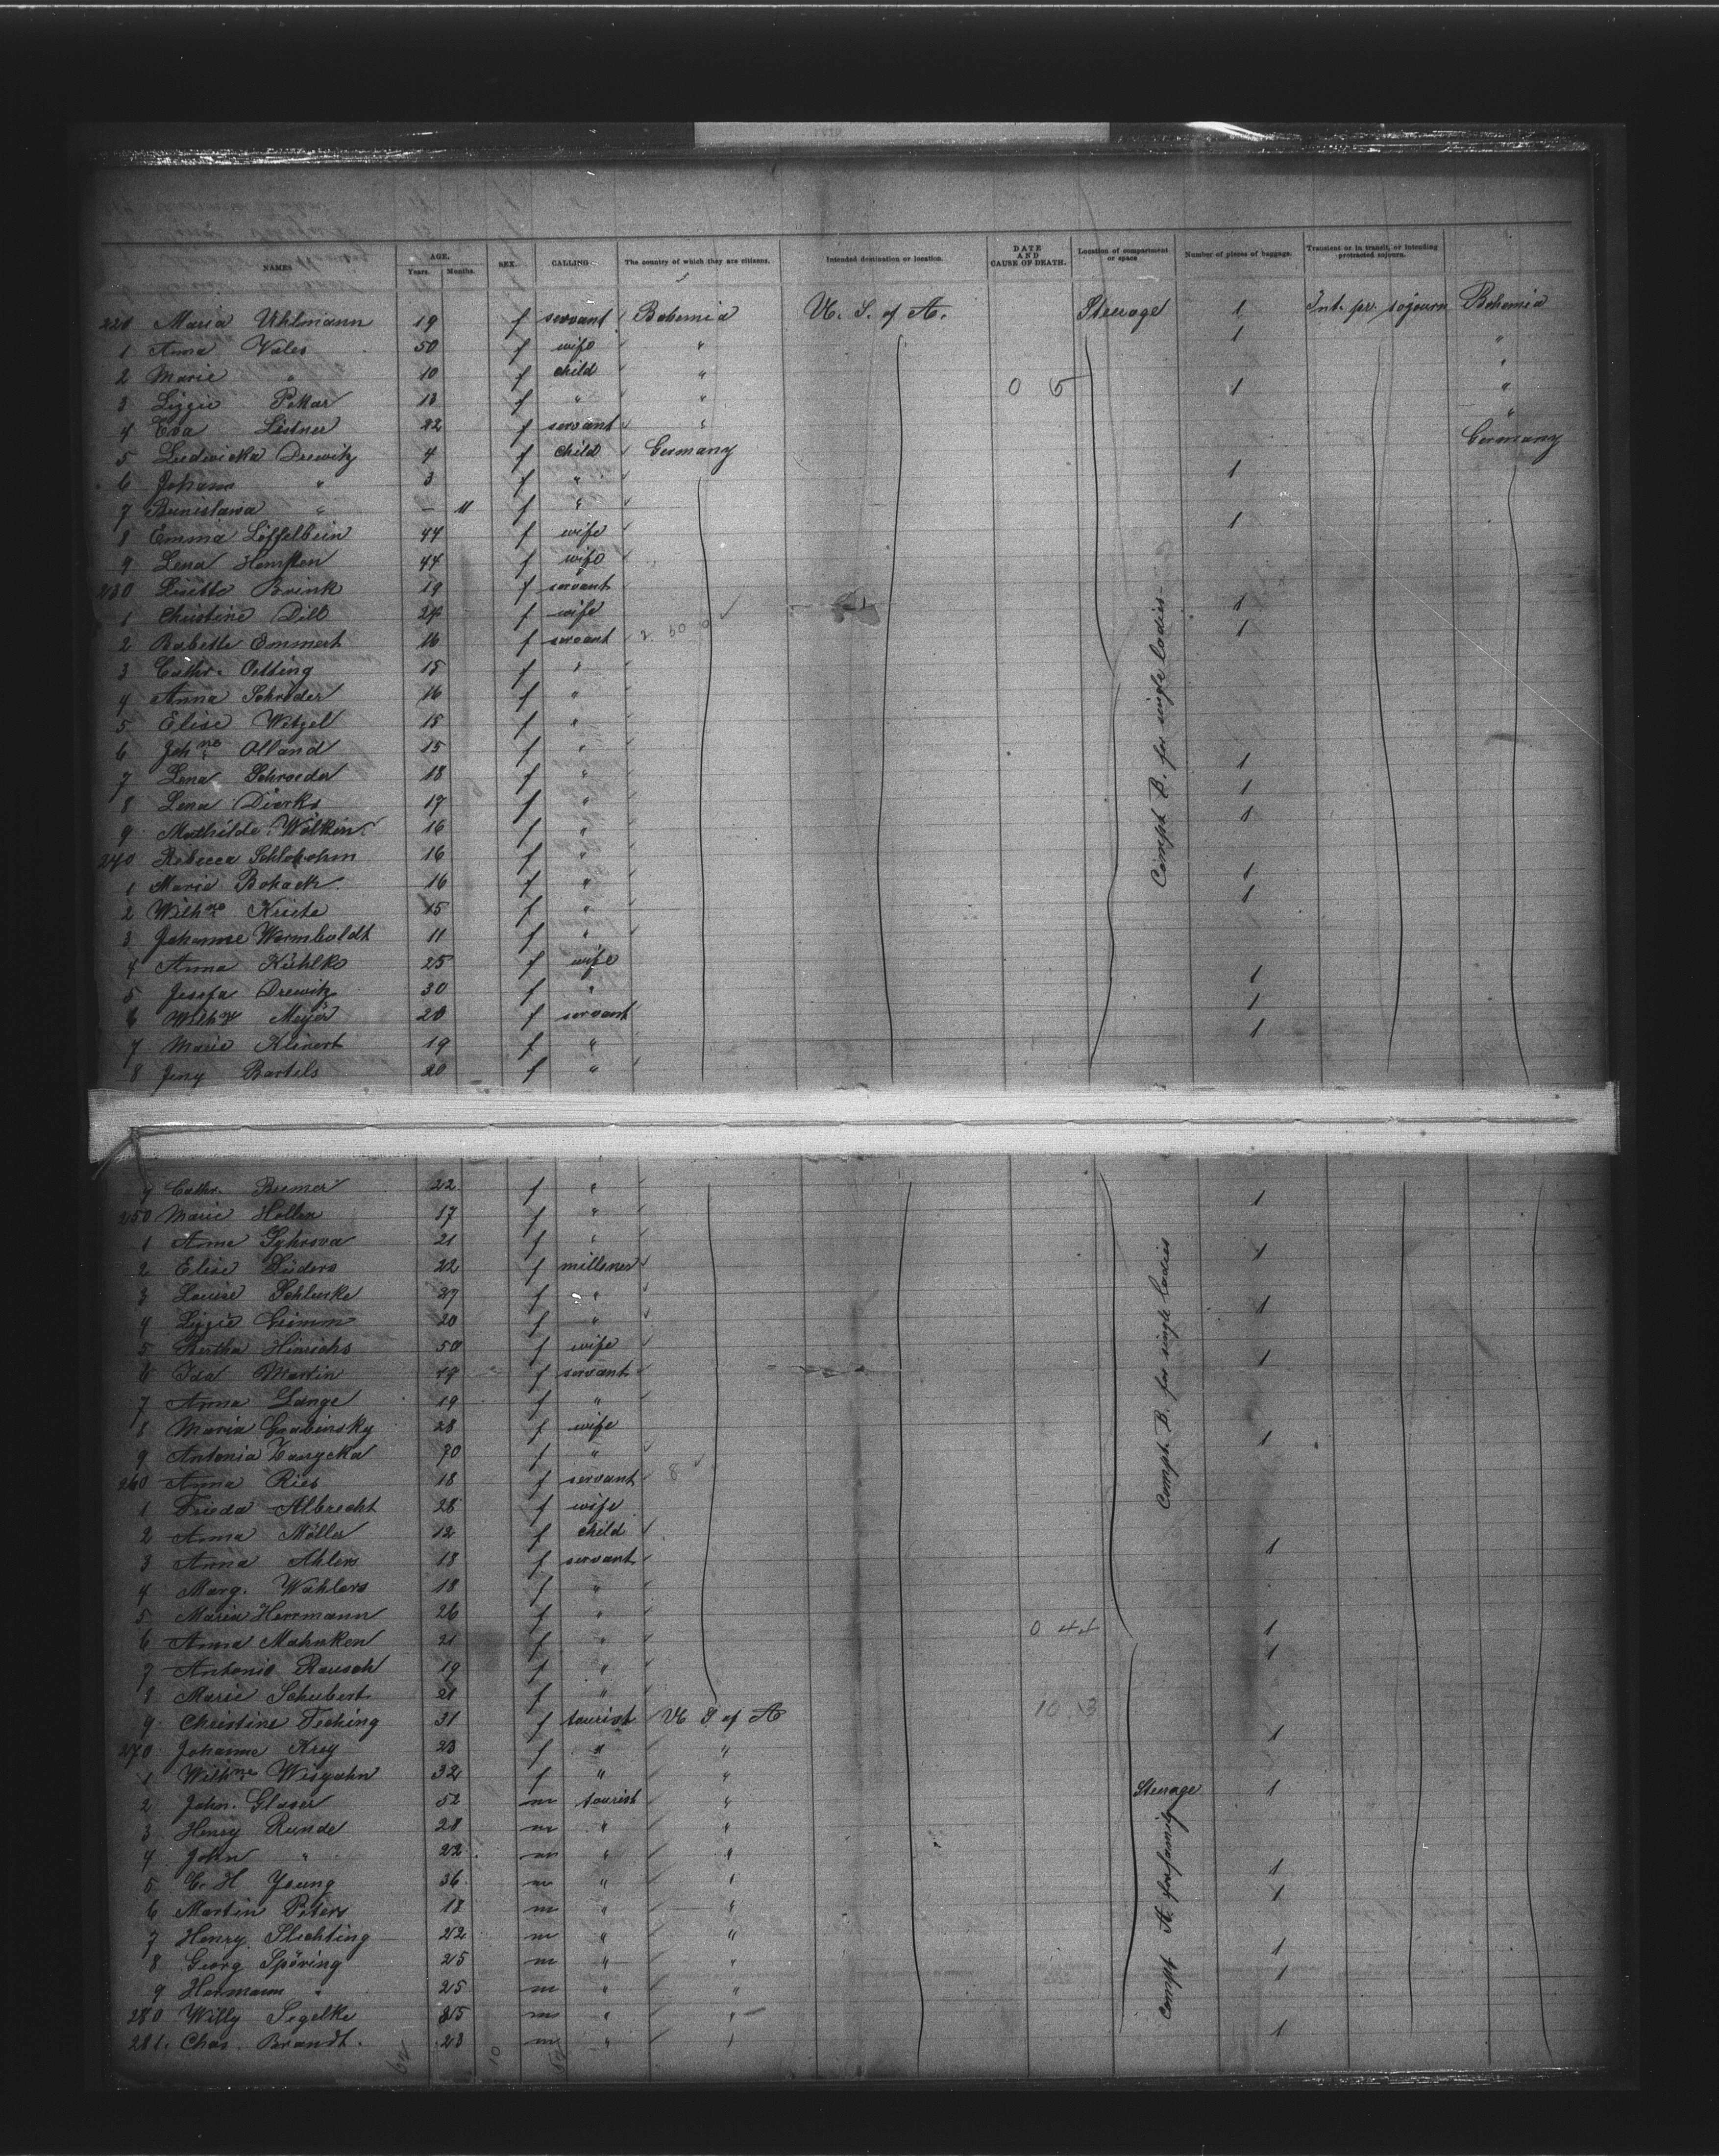 NAMES AGE. Years. Months. SEX. CALLING The country of which they are citizens. Intended destination or location. DATE AND CAUSE OF DEATH. Location of compartment or space Number of pieces of baggage. Transient or in transit, or intending protracted sojourn.
220 Maria Uhlmann 19 f servant Bohemia U. S. of A. Steerage 1 Int. pr. sojourn Bohemia
1 Anna Vales 50 f wife " 1 "
2 Marie " 10 f child " "
3 Lizzie 13 f " " 0 5 1 "
4 Eva Listner 22 f servant " "
5 Ludwicka Drewitz 4 f child Germany Germany
6 Johann " 3 f " 1
7 " – 11 f "
8 Emma Löffelbein 44 f wife 1
9 Lena 44 f wife
230 Lisette Brink 19 f servant
1 Christine Dill 24 f wife 1
2 Babette Emmert 16 f servant 1
3 Cathr. Otting 15 f "
4 Anna Schröder 16 f "
5 Elise Witzel 15 f "
6 Joh.ne Olland 15 f "
7 Lena Schroeder 18 f " 1
8 Lena Dierks 17 f " 1
9 Mathilde Wilken 16 f " 1
240 Rebecca 16 f "
1 Marie Bohack 16 f " 1
2 Wilh.ne Kriete 15 f " 1
3 Johanne Warmboldt 11 f "
4 Anna Kühlke 25 f wife
5 Josefa Drewitz 30 f " 1
6 Wilh.ne Meyer 20 f servant 1
7 Marie Klinert 19 f " 1
8 Jeny Bartels 20 f "
Compt B. for single ladies
9 Cathr. 22 f "
250 Marie Hollen 17 f " 1
1 Anna 21 f "
2 Elise Lüders 22 f milliner 1
3 Louise Schlucke 27 f "
4 Lizzie Grimm 20 f " 1
5 Bertha Hinrichs 50 f wife
6 Ida Martin 19 f servant 1
7 Anna Lange 19 f "
8 Maria Grabinsky 28 f wife
9 Antonia 70 f " 1
260 Anna Ries 18 f servant 8
1 Frieda Albrecht 28 f wife
2 Anna Möller 12 f child
3 Anna Ahlers 18 f servant 1
4 Marg. Wahlers 18 f "
5 Maria Herrmann 26 f "
6 Anna Mahnken 21 f " 0 44 1
7 Antonie Rausch 19 f " 1
8 Marie Schubert 21 f "
Compt. B. for single ladies
9 Christine 31 f tourist U S of A 10 13
270 Johanne Krey 23 f " " 1
1 Wilh.ne 32 f " "
2 John. Glaser 52 m tourist " Steerage 1
3 Henry Runde 28 m " "
4 John " 22 m " "
5 C. H Young 36 m " " 1
6 Martin Peters 18 m " " 1
7 Henry Slichting 22 m " "
8 Georg Spöring 25 m " " 1
9 Hermann " 25 m " " 1
280 Willy Segelke 25 m " "
281. Chas. Brandt. 23 m " " 1
Compt A. for family
62 10 52